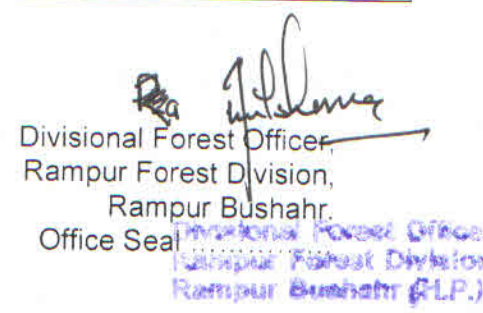 Divisional Forest Officer,
Rampur Forest Division,
Rampur Bushahr.
Office Seal ..................
Divisional Forest Office
Rampur Forest Division
Rampur Bushahr (H.P.)